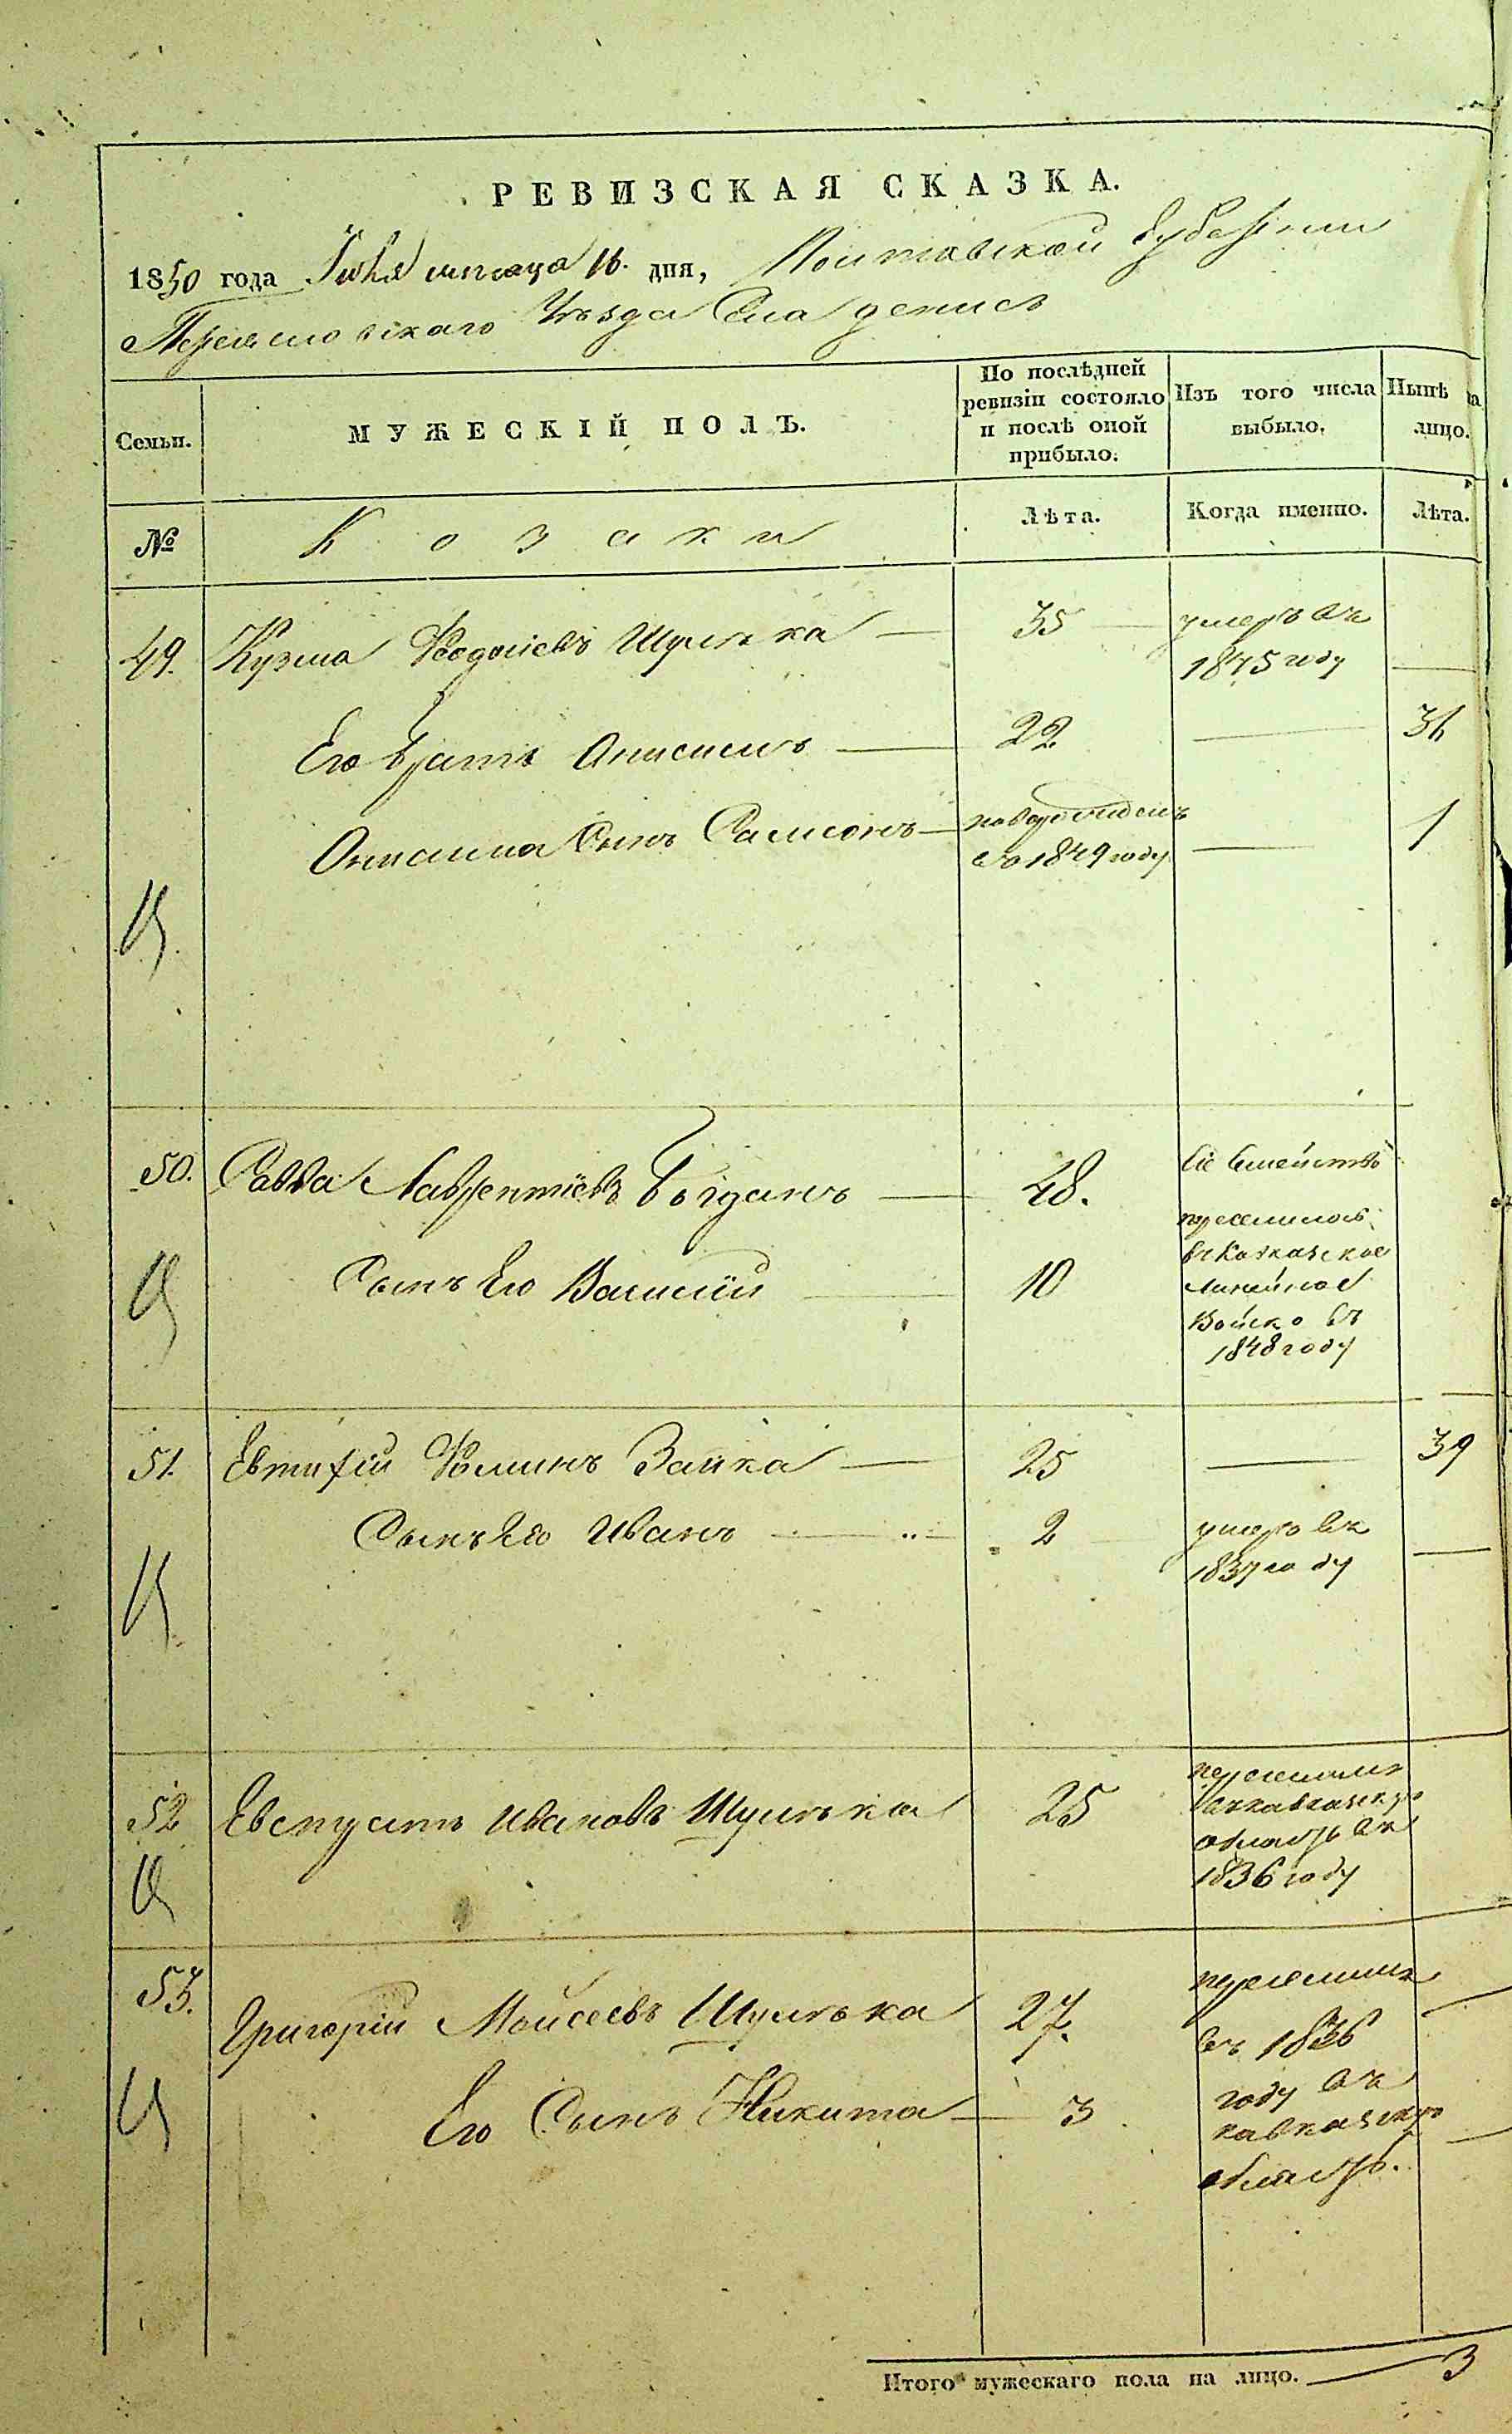 РЕВИЗСКАЯ СКАЗКА.
1850 года Июля месяца 16. дня, Полтавской Губернии
Переяславскаго Уѣзда Села Денисъ
Семьи.
МУЖЕСКІЙ ПОЛЪ.
По послѣдней ревизіи состояло и послѣ оной прибыло.
Изъ того числа выбыло.
Нынѣ на лицо.
№
Козаки
Лѣта.
Когда именно.
Лѣта.
49. Кузма Федосіевъ Шулька — 35 — умеръ въ
1845 году —
Его братъ Онисимъ — 22 — 36
Онисима Сынъ Самсонъ — новорожденъ — 1
1849 году
50. Савва Лаврентіевъ Богданъ — 48. Сіе Семейство
переселилось
Сынъ Его Василий — 10 въ Кавказское
Линейное
Войско въ
1848 году
51. Евтихій Фоминъ Заика — 25 — 39
Сынъ Его Иванъ — 2 умеръ въ
1837 году —
52 Евстратъ Ивановъ Шулька 25 переселился
въ кавказскую
область въ
1836 году
53. Григорій Моисеевъ Шулька 27. переселился —
въ 1836
году въ
Его Сынъ Никита — 3 кавказскую —
область.
Итого мужескаго пола на лицо. — 3